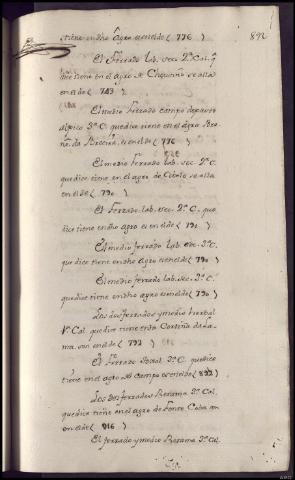 892
tiene en dho Agro es en el de ( 776 )
El Ferrado lab. sec. 2.ª Cal. q
dice tiene en el agro de se alla
en el de ( 743 )
El medio Ferrado campo de pasto
3.ª C. que dice tiene en el agro
da es en el de ( 776 )
El medio Ferrado lab. sec. 2.ª C.
que dice tiene en el agro de se alla
en el de ( 790 )
El Ferrado lab. sec. 2.ª C. que
dice tiene en dho agro es en el de ( 790 )
El medio ferrado lab. sec. 2.ª C.
que dice tiene en dho Agro es en el de ( 790 )
El medio ferrado lab. sec. 2.ª C.
que dice tiene en dho agro es en el de ( 790 )
Los dos ferrados y medio
Cal. que dice tiene en la Cortiña de la
son en el de ( 793 )
El Ferrado 3.ª C. que dice
tiene en el agro do campo es en el de ( 892 )
Los dos ferrados Resama 3.ª Cal.
que dice tiene en el agro de Fonte Coba son
en el de ( 916 )
El ferrado y medio Resama 3.ª Cal.